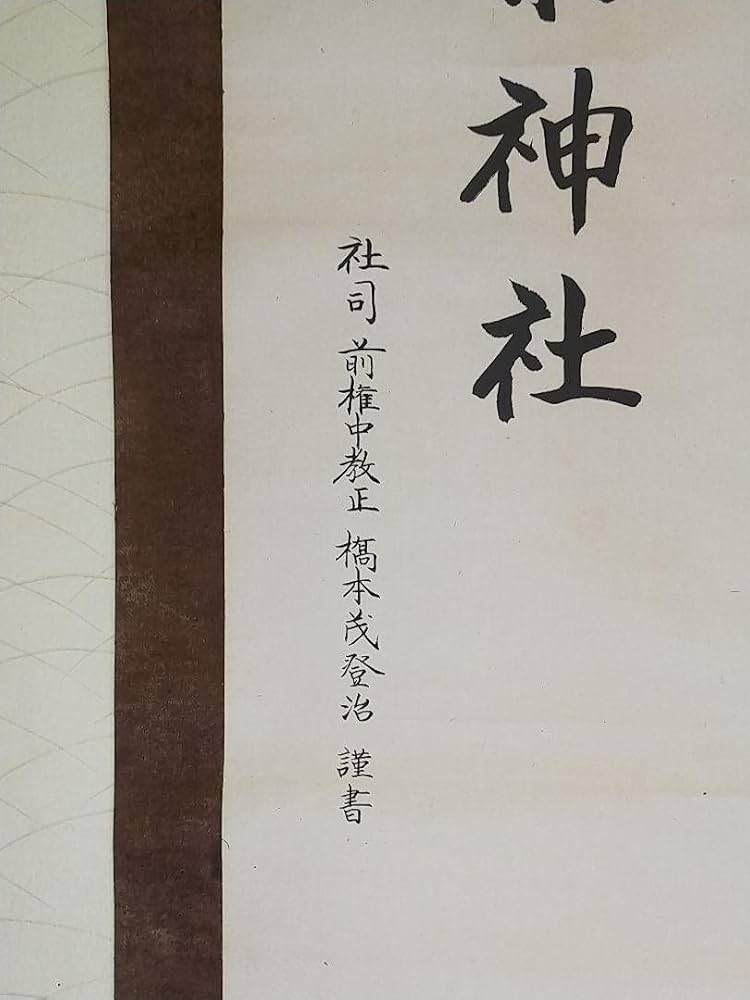 神社
社司 前権中教正 橋本茂登治 謹書